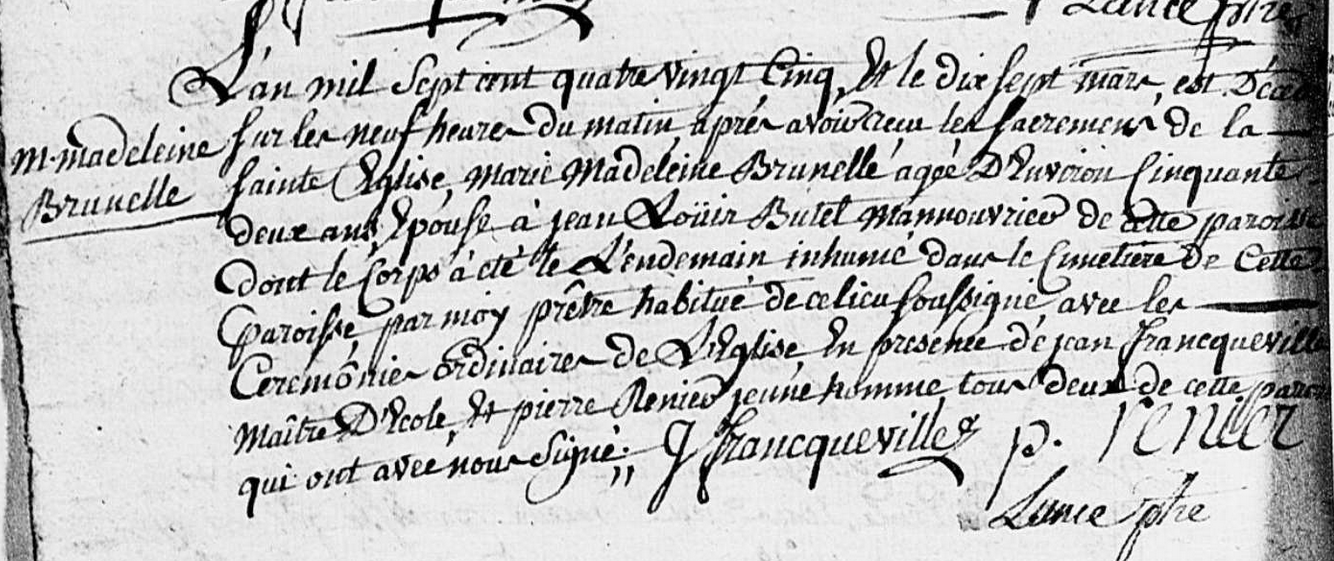 Lance ptre
L'an mil Sept cent quatre vingt Cinq, Et le dix sept mars, est Décé
M. madeleine
Brunelle
sur les neuf heures du matin, aprés avoir recu les sacremens de la
sainte Eglise, Marie Madeleine Brunelle agée D'Environ Cinquante
deux ans, Epouse à jean Loüis Butel Mannouvrier de cette paroisse
dont le Corps à eté le L'endemain inhumé dans le Cimetiere de Cette
paroisse, par moy prêtre habitué de ce lieu soussigné, avec les
Ceremônies ordinaires de L'Eglise, En presence de jean francqueville
Maître D'Ecole, Et pierre Renier jeune homme, tous deux de cette paroi
qui ont avec nous Signé ;, J francqueville p. renier
Lance ptre